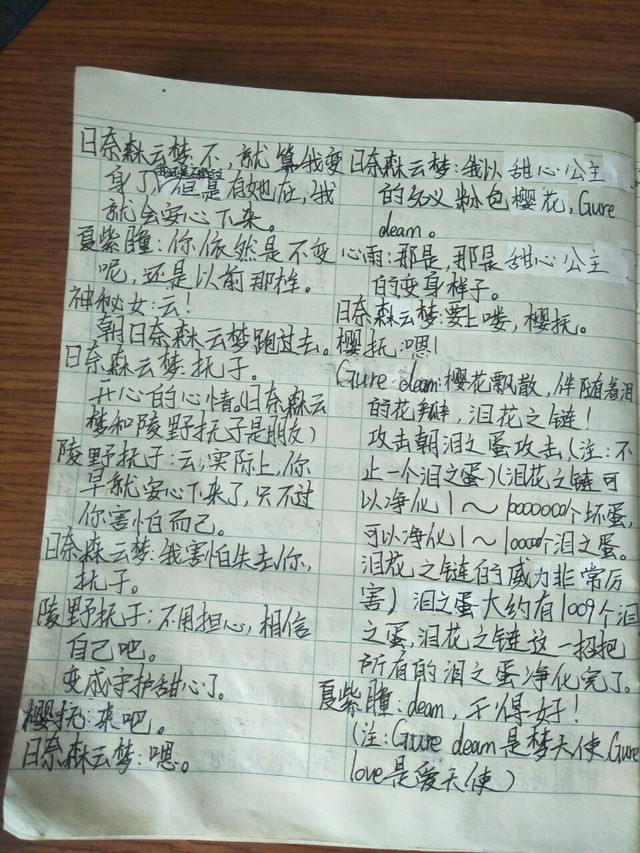 日奈森云梦:不,就算我变
身了,但是有她在,我
就会安心下来。
夏紫瞳:你依然是不变
呢,还是以前那样。
神秘女:云!
朝日奈森云梦跑过去。
日奈森云梦:抚子。
开心的心情。(日奈森云
梦和陵野抚子是朋友)
陵野抚子:云,实际上,你
早就安心下来了,只不过
你害怕而己。
日奈森云梦:我害怕失去你,
抚子。
陵野抚子:不用担心,相信
自己吧。
变成守护甜心了。
樱抚:来吧。
日奈森云梦:嗯。
日奈森云梦:我以甜心公主
的名义粉色樱花,Gure
deam。
心雨:那是,那是甜心公主
的变身样子。
日奈森云梦:要上喽,樱抚。
樱抚:嗯!
Gure deam:樱花飘散,伴随着泪
的花瓣,泪花之链!
攻击朝泪之蛋攻击,(注:不
止一个泪之蛋)(泪花之链可
以净化1~10000000个坏蛋,
可以净化1~10000个泪之蛋。
泪花之链的威力非常厉
害)泪之蛋大约有1009个泪
之蛋,泪花之链这一招把
所有的泪之蛋净化完了。
夏紫瞳:deam,干得好!
(注:Gure deam是梦天使,Gure
love是爱天使)